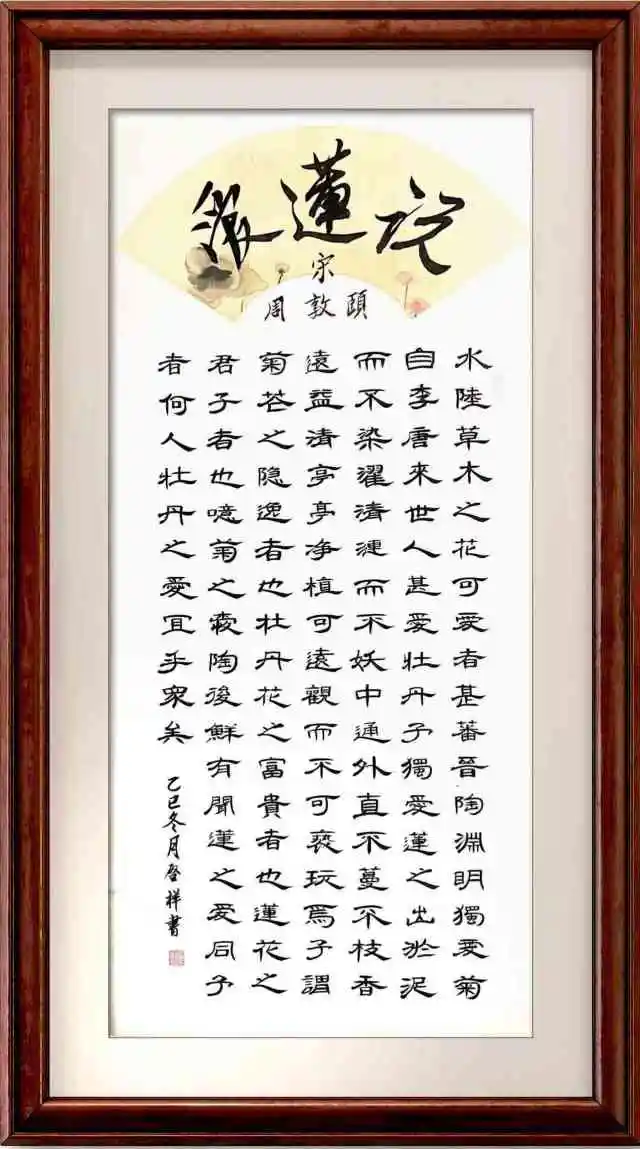 愛蓮説
宋
周敦頤
水陸草木之花可愛者甚蕃晉陶淵明獨愛菊
自李唐來世人甚愛牡丹予獨愛蓮之出淤泥
而不染濯清漣而不妖中通外直不蔓不枝香
遠益清亭亭净植可遠觀而不可褻玩焉予謂
菊花之隐逸者也牡丹花之富貴者也蓮花之
君子者也噫菊之愛陶後鮮有聞蓮之愛同予
者何人牡丹之愛宜乎衆矣
乙巳冬月啓祥書